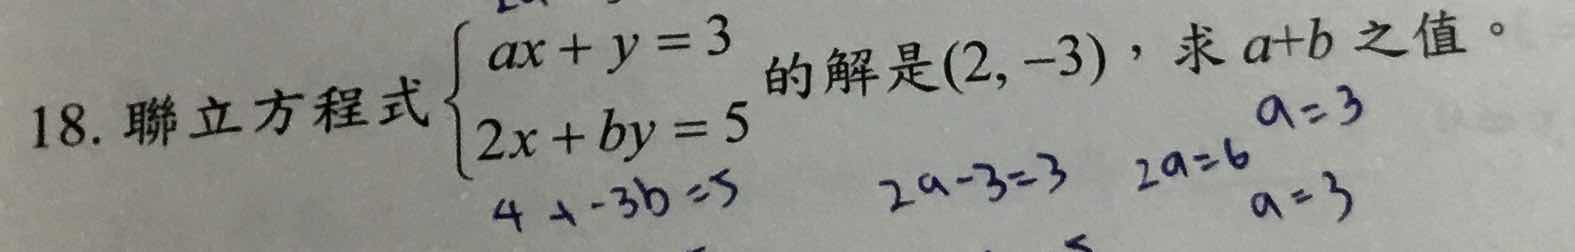 18. 聯立方程式 { ax + y = 3
2x + by = 5 的解是(2, −3)，求 a+b 之值。
a=3
4+-3b=5 2a-3=3 2a=6
a=3